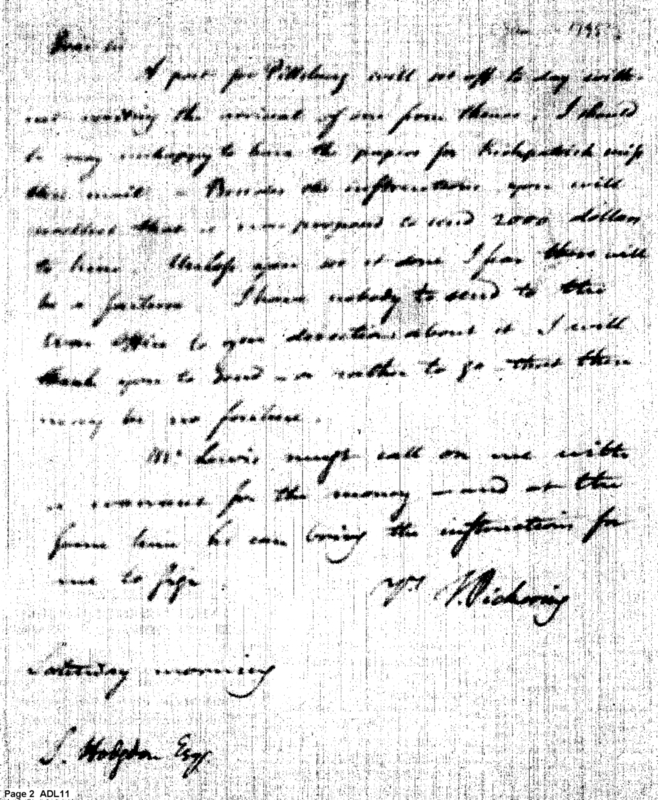 1795
Dear Sir
A post for Pittsburg will set off to day with-
out waiting the arrival of one from thence. I should
be very unhappy to have the papers for Kirkpatrick miss
this mail - Besides the instructions you will
recollect that it was proposed to send 2000 dollars
to him. Unless you see it done I fear there will
be a failure I have nobody to send to the
office to give directions about it I will
thank you to send - or rather to go - that there
may be no failure.
Mr Lewis must call on me with
a warrant for the money - and at the
same time he can bring the instructions for
me to sign
Yrs T. Pickering
Saturday morning
S. Hodgdon Esqr
Page 2 ADL11